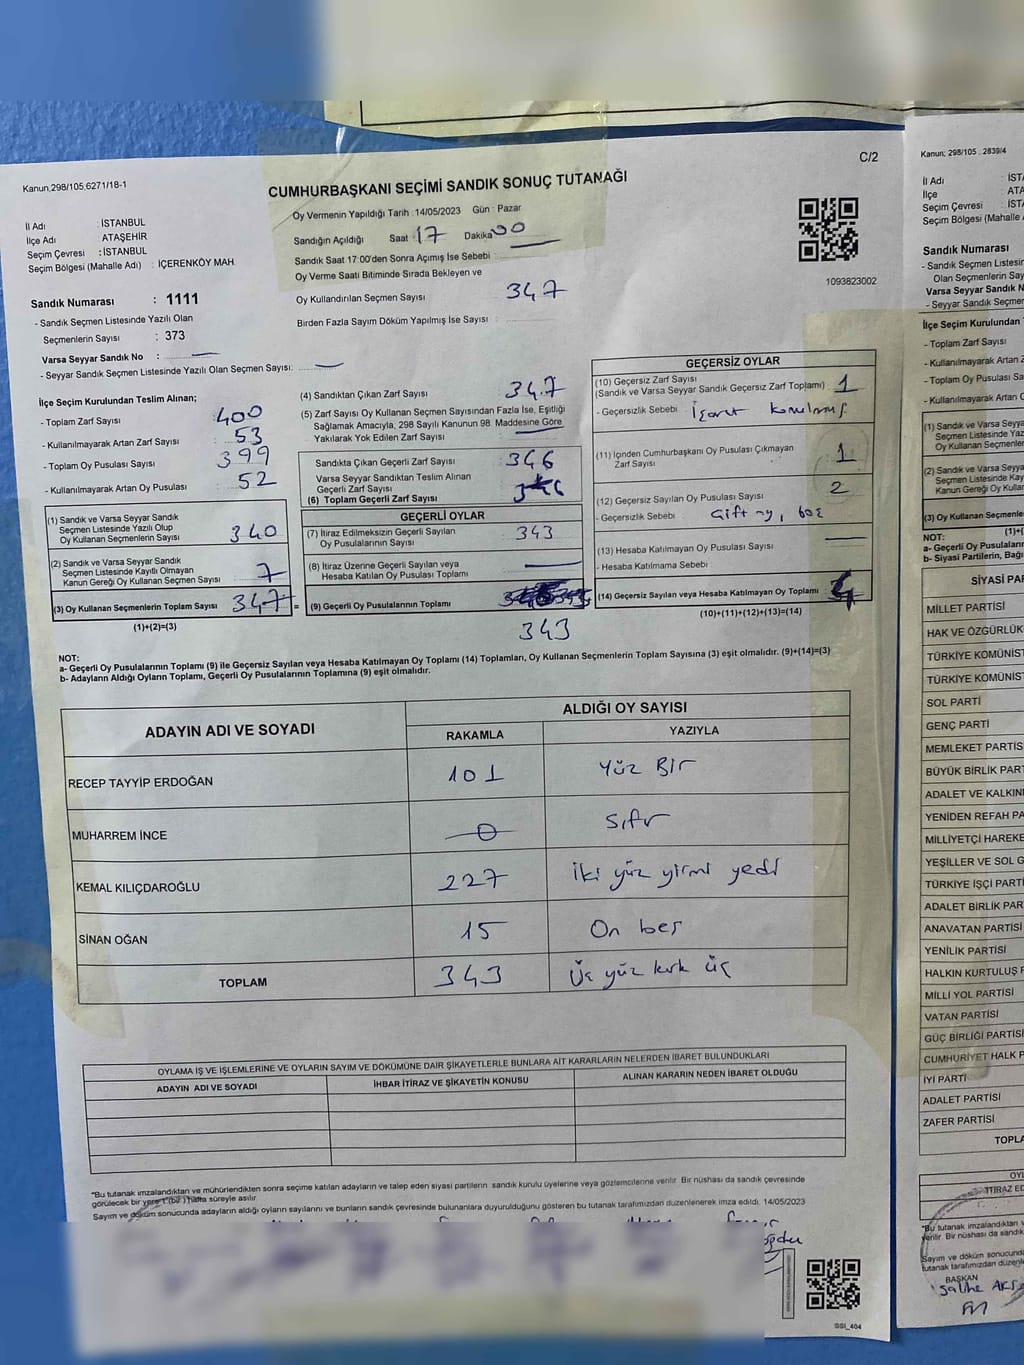 Kanun,298/105,6271/18-1
C/2
CUMHURBAŞKANI SEÇİMİ SANDIK SONUÇ TUTANAĞI
İl Adı : İSTANBUL
İlçe Adı : ATAŞEHİR
Seçim Çevresi : İSTANBUL
Seçim Bölgesi (Mahalle Adı) : İÇERENKÖY MAH.
Sandık Numarası : 1111
- Sandık Seçmen Listesinde Yazılı Olan
Seçmenlerin Sayısı : 373
Varsa Seyyar Sandık No : —
- Seyyar Sandık Seçmen Listesinde Yazılı Olan Seçmen Sayısı: —
Oy Vermenin Yapıldığı Tarih : 14/05/2023 Gün : Pazar
Sandığın Açıldığı Saat : 17 Dakika 00
Sandık Saat 17:00'den Sonra Açımış İse Sebebi : —
Oy Verme Saati Bitiminde Sırada Bekleyen ve
Oy Kullandırılan Seçmen Sayısı 347
Birden Fazla Sayım Döküm Yapılmış İse Sayısı :
1093823002
İlçe Seçim Kurulundan Teslim Alınan;
- Toplam Zarf Sayısı : 400
- Kullanılmayarak Artan Zarf Sayısı : 53
- Toplam Oy Pusulası Sayısı : 399
- Kullanılmayarak Artan Oy Pusulası : 52
(1) Sandık ve Varsa Seyyar Sandık
Seçmen Listesinde Yazılı Olup
Oy Kullanan Seçmenlerin Sayısı 340
(2) Sandık ve Varsa Seyyar Sandık
Seçmen Listesinde Kayıtlı Olmayan
Kanun Gereği Oy Kullanan Seçmen Sayısı 7
(3) Oy Kullanan Seçmenlerin Toplam Sayısı 347 =
(1)+(2)=(3)
(4) Sandıktan Çıkan Zarf Sayısı 347
(5) Zarf Sayısı Oy Kullanan Seçmen Sayısından Fazla İse, Eşitliği
Sağlamak Amacıyla, 298 Sayılı Kanunun 98. Maddesine Göre
Yakılarak Yok Edilen Zarf Sayısı —
Sandıkta Çıkan Geçerli Zarf Sayısı 346
Varsa Seyyar Sandıktan Teslim Alınan
Geçerli Zarf Sayısı
(6) Toplam Geçerli Zarf Sayısı 346
GEÇERLİ OYLAR
(7) İtiraz Edilmeksizin Geçerli Sayılan
Oy Pusulalarının Sayısı 343
(8) İtiraz Üzerine Geçerli Sayılan veya
Hesaba Katılan Oy Pusulası Toplamı —
(9) Geçerli Oy Pusulalarının Toplamı
343
GEÇERSİZ OYLAR
(10) Geçersiz Zarf Sayısı
(Sandık ve Varsa Seyyar Sandık Geçersiz Zarf Toplamı) 1
- Geçersizlik Sebebi İşaret konulmuş
(11) İçinden Cumhurbaşkanı Oy Pusulası Çıkmayan
Zarf Sayısı 1
(12) Geçersiz Sayılan Oy Pusulası Sayısı 2
- Geçersizlik Sebebi Çift oy, boş
(13) Hesaba Katılmayan Oy Pusulası Sayısı —
- Hesaba Katılmama Sebebi
(14) Geçersiz Sayılan veya Hesaba Katılmayan Oy Toplamı 4
(10)+(11)+(12)+(13)=(14)
NOT:
a- Geçerli Oy Pusulalarının Toplamı (9) ile Geçersiz Sayılan veya Hesaba Katılmayan Oy Toplamı (14) Toplamları, Oy Kullanan Seçmenlerin Toplam Sayısına (3) eşit olmalıdır. (9)+(14)=(3)
b- Adayların Aldığı Oyların Toplamı, Geçerli Oy Pusulalarının Toplamına (9) eşit olmalıdır.
ADAYIN ADI VE SOYADI ALDIĞI OY SAYISI
RAKAMLA YAZIYLA
RECEP TAYYİP ERDOĞAN 101 Yüz Bir
MUHARREM İNCE 0 Sıfır
KEMAL KILIÇDAROĞLU 227 İki yüz yirmi yedi
SİNAN OĞAN 15 On beş
TOPLAM 343 Üç yüz kırk üç
OYLAMA İŞ VE İŞLEMLERİNE VE OYLARIN SAYIM VE DÖKÜMÜNE DAİR ŞİKAYETLERLE BUNLARA AİT KARARLARIN NELERDEN İBARET BULUNDUKLARI
ADAYIN ADI VE SOYADI İHBAR İTİRAZ VE ŞİKAYETİN KONUSU ALINAN KARARIN NEDEN İBARET OLDUĞU
*Bu tutanak imzalandıktan ve mühürlendikten sonra seçime katılan adayların ve talep eden siyasi partilerin sandık kurulu üyelerine veya gözlemcilerine verilir. Bir nüshası da sandık çevresinde
görülecek bir yere 1 (bir) hafta süreyle asılır.
Sayım ve döküm sonucunda adayların aldığı oyların sayılarını ve bunların sandık çevresinde bulunanlara duyurulduğunu gösteren bu tutanak tarafımızdan düzenlenerek imza edildi. 14/05/2023
SSI_404
Kanun; 298/105 , 2839/4
İl Adı : İST
İlçe : ATA
Seçim Çevresi : İST
Seçim Bölgesi (Mahalle
Sandık Numarası
- Sandık Seçmen Listesin
Olan Seçmenlerin Say
Varsa Seyyar Sandık N
- Seyyar Sandık Seçmen
İlçe Seçim Kurulundan
- Toplam Zarf Sayısı
- Kullanılmayarak Artan
- Toplam Oy Pusulası
- Kullanılmayarak Artan
(1) Sandık ve Varsa
Seçmen Listesinde Yaz
Oy Kullanan Seçmenler
(2) Sandık ve Varsa
Seçmen Listesinde
Kanun Gereği Oy Kullan
(3) Oy Kullanan Seçmenle
(1)+
NOT:
a- Geçerli Oy Pusulaları
b- Siyasi Partilerin, Bağı
SİYASİ PA
MİLLET PARTİSİ
HAK VE ÖZGÜRLÜK
TÜRKİYE KOMÜNİST
TÜRKİYE KOMÜNİST
SOL PARTİ
GENÇ PARTİ
MEMLEKET PARTİS
BÜYÜK BİRLİK PART
ADALET VE KALKIN
YENİDEN REFAH PA
MİLLİYETÇİ HAREKE
YEŞİLLER VE SOL G
TÜRKİYE İŞÇİ PARTİ
ADALET BİRLİK PAR
ANAVATAN PARTİSİ
YENİLİK PARTİSİ
HALKIN KURTULUŞ P
MİLLİ YOL PARTİSİ
VATAN PARTİSİ
GÜÇ BİRLİĞİ PARTİSİ
CUMHURİYET HALK P
İYİ PARTİ
ADALET PARTİSİ
ZAFER PARTİSİ
TOPLA
OY
İTİRAZ ED
*Bu tutanak imzalandıktan
verilir. Bir nüshası da sandık
Sayım ve döküm sonucunda
tutanak tarafımızdan düzenle
BAŞKAN